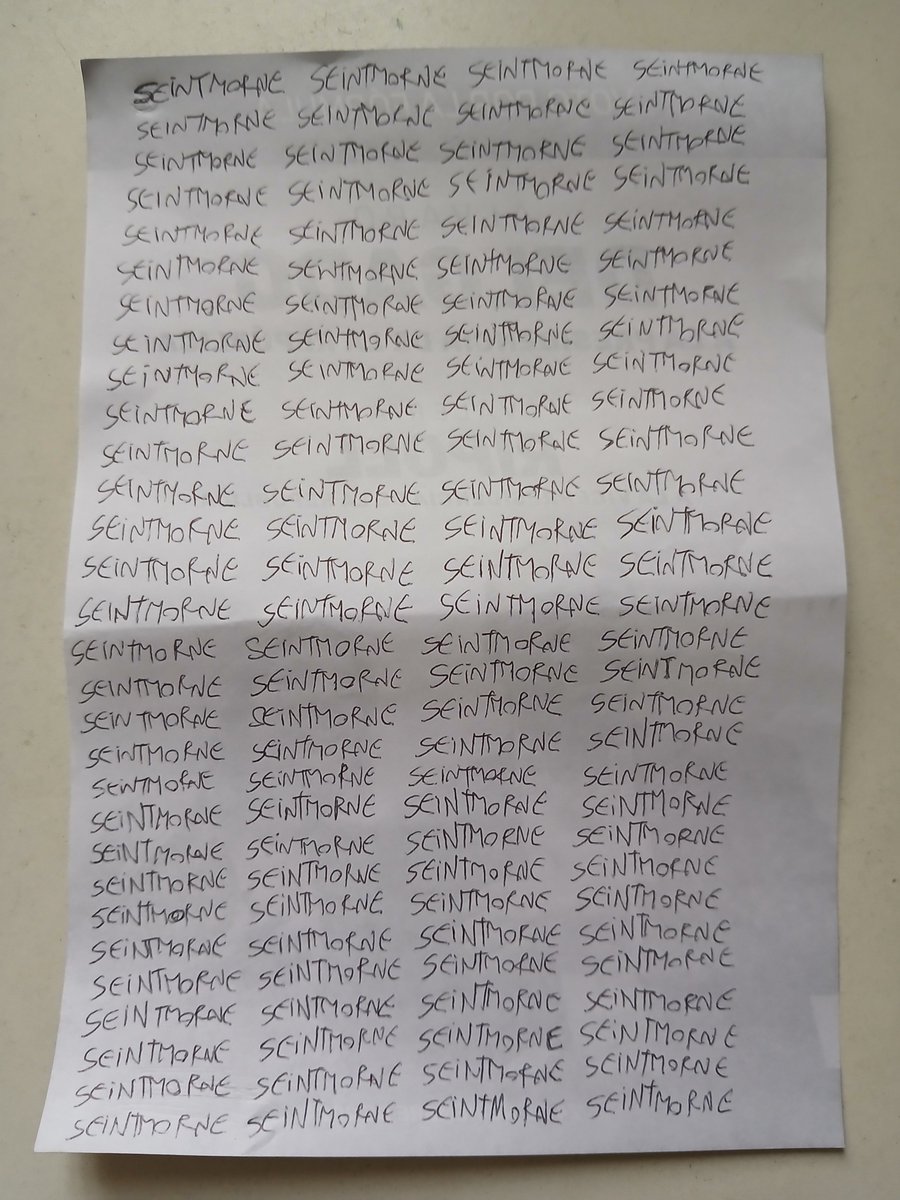 SEINTMORNE SEINTMORNE SEINTMORNE SEINTMORNE
SEINTMORNE SEINTMORNE SEINTMORNE SEINTMORNE
SEINTMORNE SEINTMORNE SEINTMORNE SEINTMORNE
SEINTMORNE SEINTMORNE SEINTMORNE SEINTMORNE
SEINTMORNE SEINTMORNE SEINTMORNE SEINTMORNE
SEINTMORNE SEINTMORNE SEINTMORNE SEINTMORNE
SEINTMORNE SEINTMORNE SEINTMORNE SEINTMORNE
SEINTMORNE SEINTMORNE SEINTMORNE SEINTMORNE
SEINTMORNE SEINTMORNE SEINTMORNE SEINTMORNE
SEINTMORNE SEINTMORNE SEINTMORNE SEINTMORNE
SEINTMORNE SEINTMORNE SEINTMORNE SEINTMORNE
SEINTMORNE SEINTMORNE SEINTMORNE SEINTMORNE
SEINTMORNE SEINTMORNE SEINTMORNE SEINTMORNE
SEINTMORNE SEINTMORNE SEINTMORNE SEINTMORNE
SEINTMORNE SEINTMORNE SEINTMORNE SEINTMORNE
SEINTMORNE SEINTMORNE SEINTMORNE SEINTMORNE
SEINTMORNE SEINTMORNE SEINTMORNE SEINTMORNE
SEINTMORNE SEINTMORNE SEINTMORNE SEINTMORNE
SEINTMORNE SEINTMORNE SEINTMORNE SEINTMORNE
SEINTMORNE SEINTMORNE SEINTMORNE SEINTMORNE
SEINTMORNE SEINTMORNE SEINTMORNE SEINTMORNE
SEINTMORNE SEINTMORNE SEINTMORNE SEINTMORNE
SEINTMORNE SEINTMORNE SEINTMORNE SEINTMORNE
SEINTMORNE SEINTMORNE SEINTMORNE SEINTMORNE
SEINTMORNE SEINTMORNE SEINTMORNE SEINTMORNE
SEINTMORNE SEINTMORNE SEINTMORNE SEINTMORNE
SEINTMORNE SEINTMORNE SEINTMORNE SEINTMORNE
SEINTMORNE SEINTMORNE SEINTMORNE SEINTMORNE
SEINTMORNE SEINTMORNE SEINTMORNE SEINTMORNE
SEINTMORNE SEINTMORNE SEINTMORNE SEINTMORNE